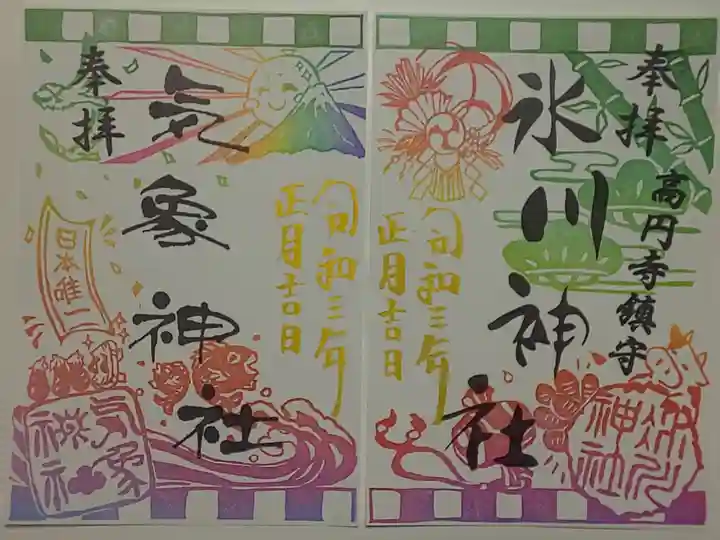 奉拝
高円寺鎮守
氷川神社
令和三年
正月吉日
氷川
神社
奉拝
気象神社
令和三年
正月吉日
日本唯一
気象
神社